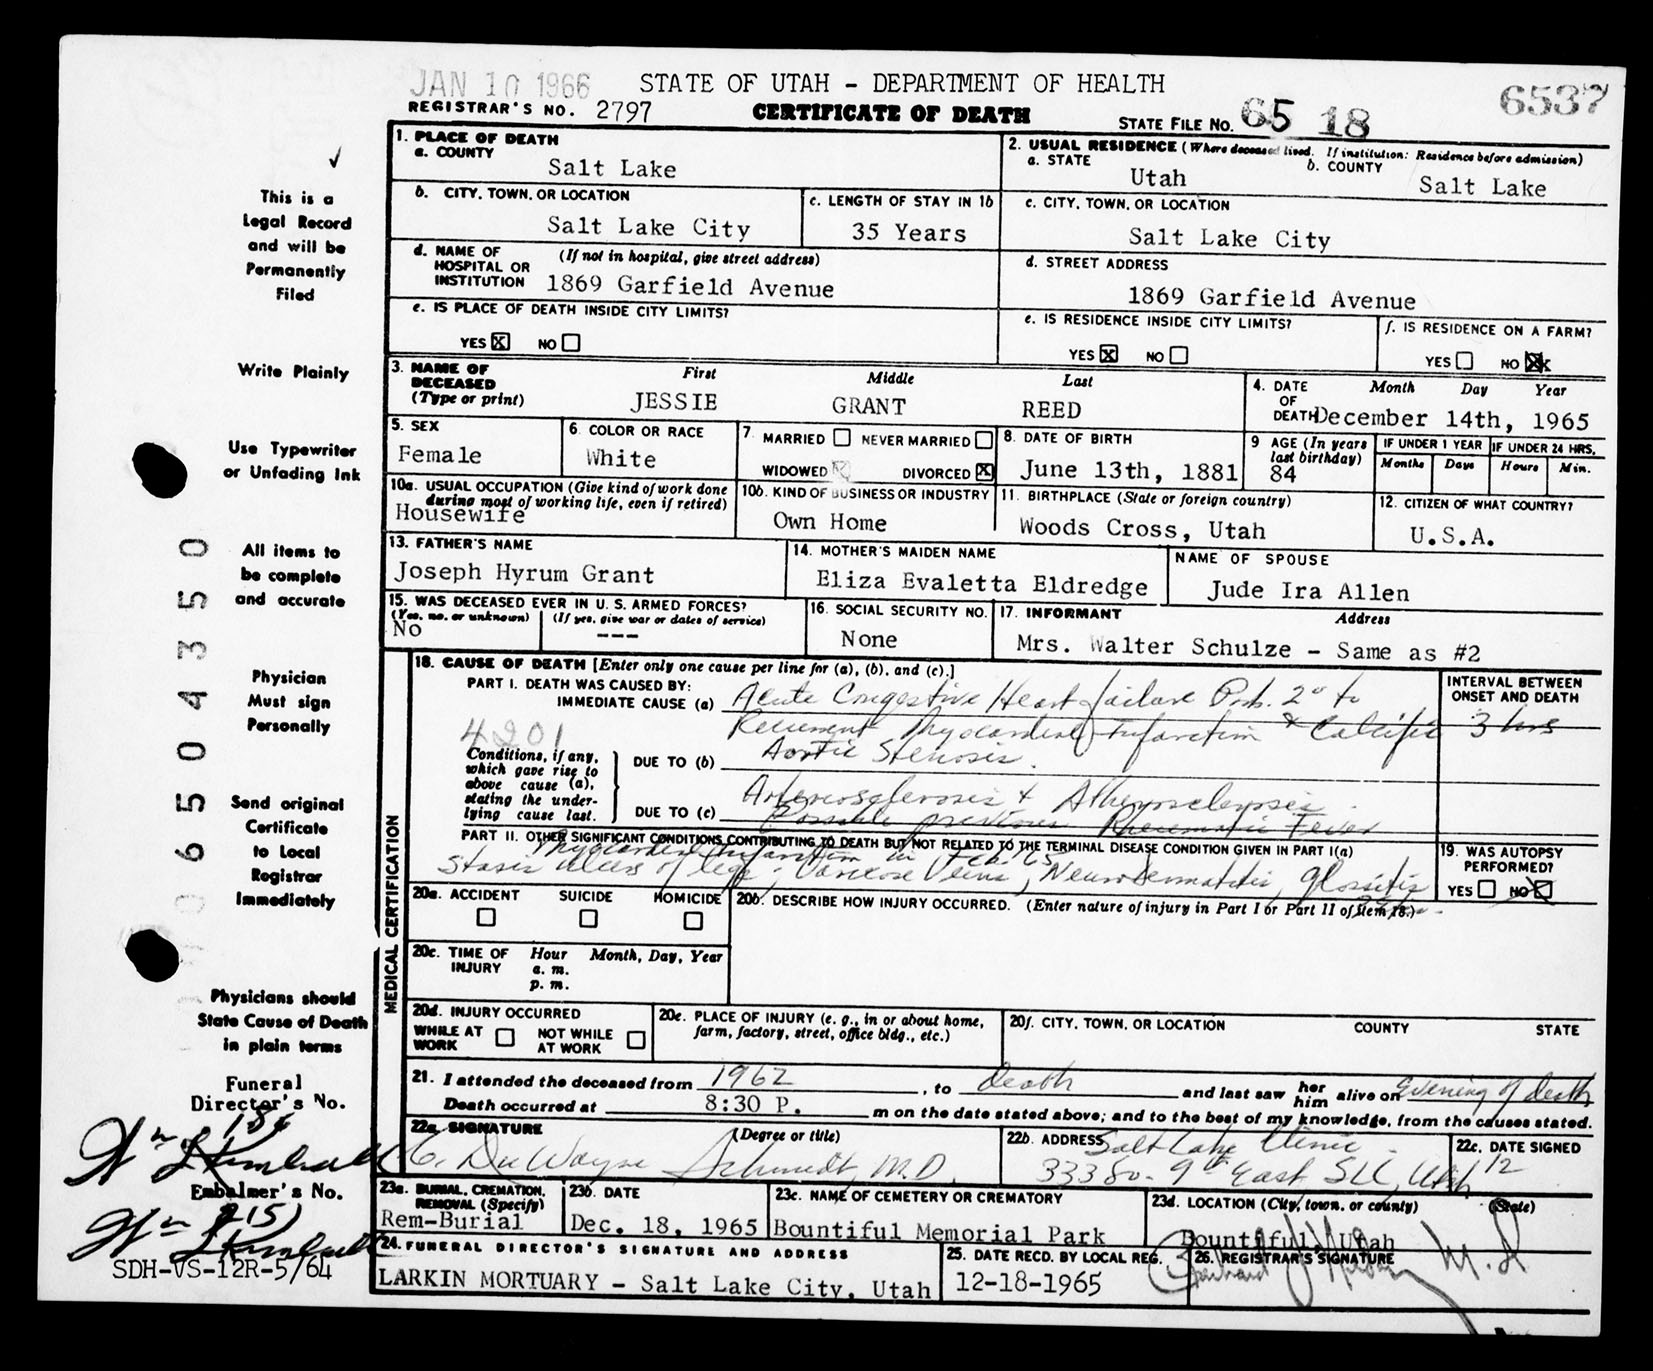 JAN 10 1966 STATE OF UTAH - DEPARTMENT OF HEALTH 6537
REGISTRAR'S NO. 2797 CERTIFICATE OF DEATH STATE FILE NO. 65 18
1. PLACE OF DEATH
a. COUNTY
Salt Lake
2. USUAL RESIDENCE (Where deceased lived. If institution: Residence before admission)
a. STATE b. COUNTY
Utah Salt Lake
b. CITY, TOWN, OR LOCATION
Salt Lake City
c. LENGTH OF STAY IN 1b
35 Years
c. CITY, TOWN, OR LOCATION
Salt Lake City
d. NAME OF HOSPITAL OR INSTITUTION (If not in hospital, give street address)
1869 Garfield Avenue
d. STREET ADDRESS
1869 Garfield Avenue
e. IS PLACE OF DEATH INSIDE CITY LIMITS?
YES X NO
e. IS RESIDENCE INSIDE CITY LIMITS?
YES X NO
f. IS RESIDENCE ON A FARM?
YES NO X
3. NAME OF DECEASED (Type or print)
First Middle Last
JESSIE GRANT REED
4. DATE OF DEATH Month Day Year
December 14th, 1965
5. SEX
Female
6. COLOR OR RACE
White
7. MARRIED NEVER MARRIED
WIDOWED DIVORCED X
8. DATE OF BIRTH
June 13th, 1881
9 AGE (In years last birthday)
84
IF UNDER 1 YEAR IF UNDER 24 HRS.
Months Days Hours Min.
10a. USUAL OCCUPATION (Give kind of work done during most of working life, even if retired)
Housewife
10b. KIND OF BUSINESS OR INDUSTRY
Own Home
11. BIRTHPLACE (State or foreign country)
Woods Cross, Utah
12. CITIZEN OF WHAT COUNTRY?
U.S.A.
13. FATHER'S NAME
Joseph Hyrum Grant
14. MOTHER'S MAIDEN NAME
Eliza Evaletta Eldredge
NAME OF SPOUSE
Jude Ira Allen
15. WAS DECEASED EVER IN U. S. ARMED FORCES?
(Yes, no, or unknown) (If yes, give war or dates of service)
No ---
16. SOCIAL SECURITY NO.
None
17. INFORMANT Address
Mrs. Walter Schulze - Same as #2
MEDICAL CERTIFICATION
18. CAUSE OF DEATH [Enter only one cause per line for (a), (b), and (c).]
PART I. DEATH WAS CAUSED BY:
IMMEDIATE CAUSE (a) Acute Congestive Heart failure Prob. 2° to
Recurrent Myocardial Infarction & Calcific
4201
Conditions, if any, which gave rise to above cause (a), stating the underlying cause last.
DUE TO (b) Aortic Stenosis.
DUE TO (c) Arteriosclerosis & Atherosclerosis.
Possible previous Rheumatic Fever
INTERVAL BETWEEN ONSET AND DEATH
3 hrs
PART II. OTHER SIGNIFICANT CONDITIONS CONTRIBUTING TO DEATH BUT NOT RELATED TO THE TERMINAL DISEASE CONDITION GIVEN IN PART I(a)
Myocardial Infarction in Feb. '65
Stasis Ulcers of legs; Varicose Veins, Neurodermatitis, glossitis
19. WAS AUTOPSY PERFORMED?
YES NO X
20a. ACCIDENT SUICIDE HOMICIDE
20b. DESCRIBE HOW INJURY OCCURRED. (Enter nature of injury in Part I or Part II of item 18.)
20c. TIME OF INJURY Hour Month, Day, Year
a. m.
p. m.
20d. INJURY OCCURRED
WHILE AT WORK NOT WHILE AT WORK
20e. PLACE OF INJURY (e. g., in or about home, farm, factory, street, office bldg., etc.)
20f. CITY, TOWN, OR LOCATION COUNTY STATE
21. I attended the deceased from 1962, to death and last saw her him alive on Evening of death
Death occurred at 8:30 P. m on the date stated above; and to the best of my knowledge, from the causes stated.
22a. SIGNATURE (Degree or title)
C. DuWayne Schmidt, M.D.
22b. ADDRESS
Salt Lake Clinic
333 So. 9th East SLC, Utah
22c. DATE SIGNED
12
23a. BURIAL, CREMATION, REMOVAL (Specify)
Rem-Burial
23b. DATE
Dec. 18, 1965
23c. NAME OF CEMETERY OR CREMATORY
Bountiful Memorial Park
23d. LOCATION (City, town, or county) (State)
Bountiful, Utah
24. FUNERAL DIRECTOR'S SIGNATURE AND ADDRESS
LARKIN MORTUARY - Salt Lake City, Utah
25. DATE RECD. BY LOCAL REG.
12-18-1965
26. REGISTRAR'S SIGNATURE
M.D.
This is a
Legal Record
and will be
Permanently
Filed
Write Plainly
Use Typewriter
or Unfading Ink
All items to
be complete
and accurate
Physician
Must sign
Personally
Send original
Certificate
to Local
Registrar
Immediately
Physicians should
State Cause of Death
in plain terms
Funeral
Director's No.
Wm L Kimball
Embalmer's No.
Wm L Kimball
SDH-VS-12R-5/64
0 6 5 0 4 3 5 0